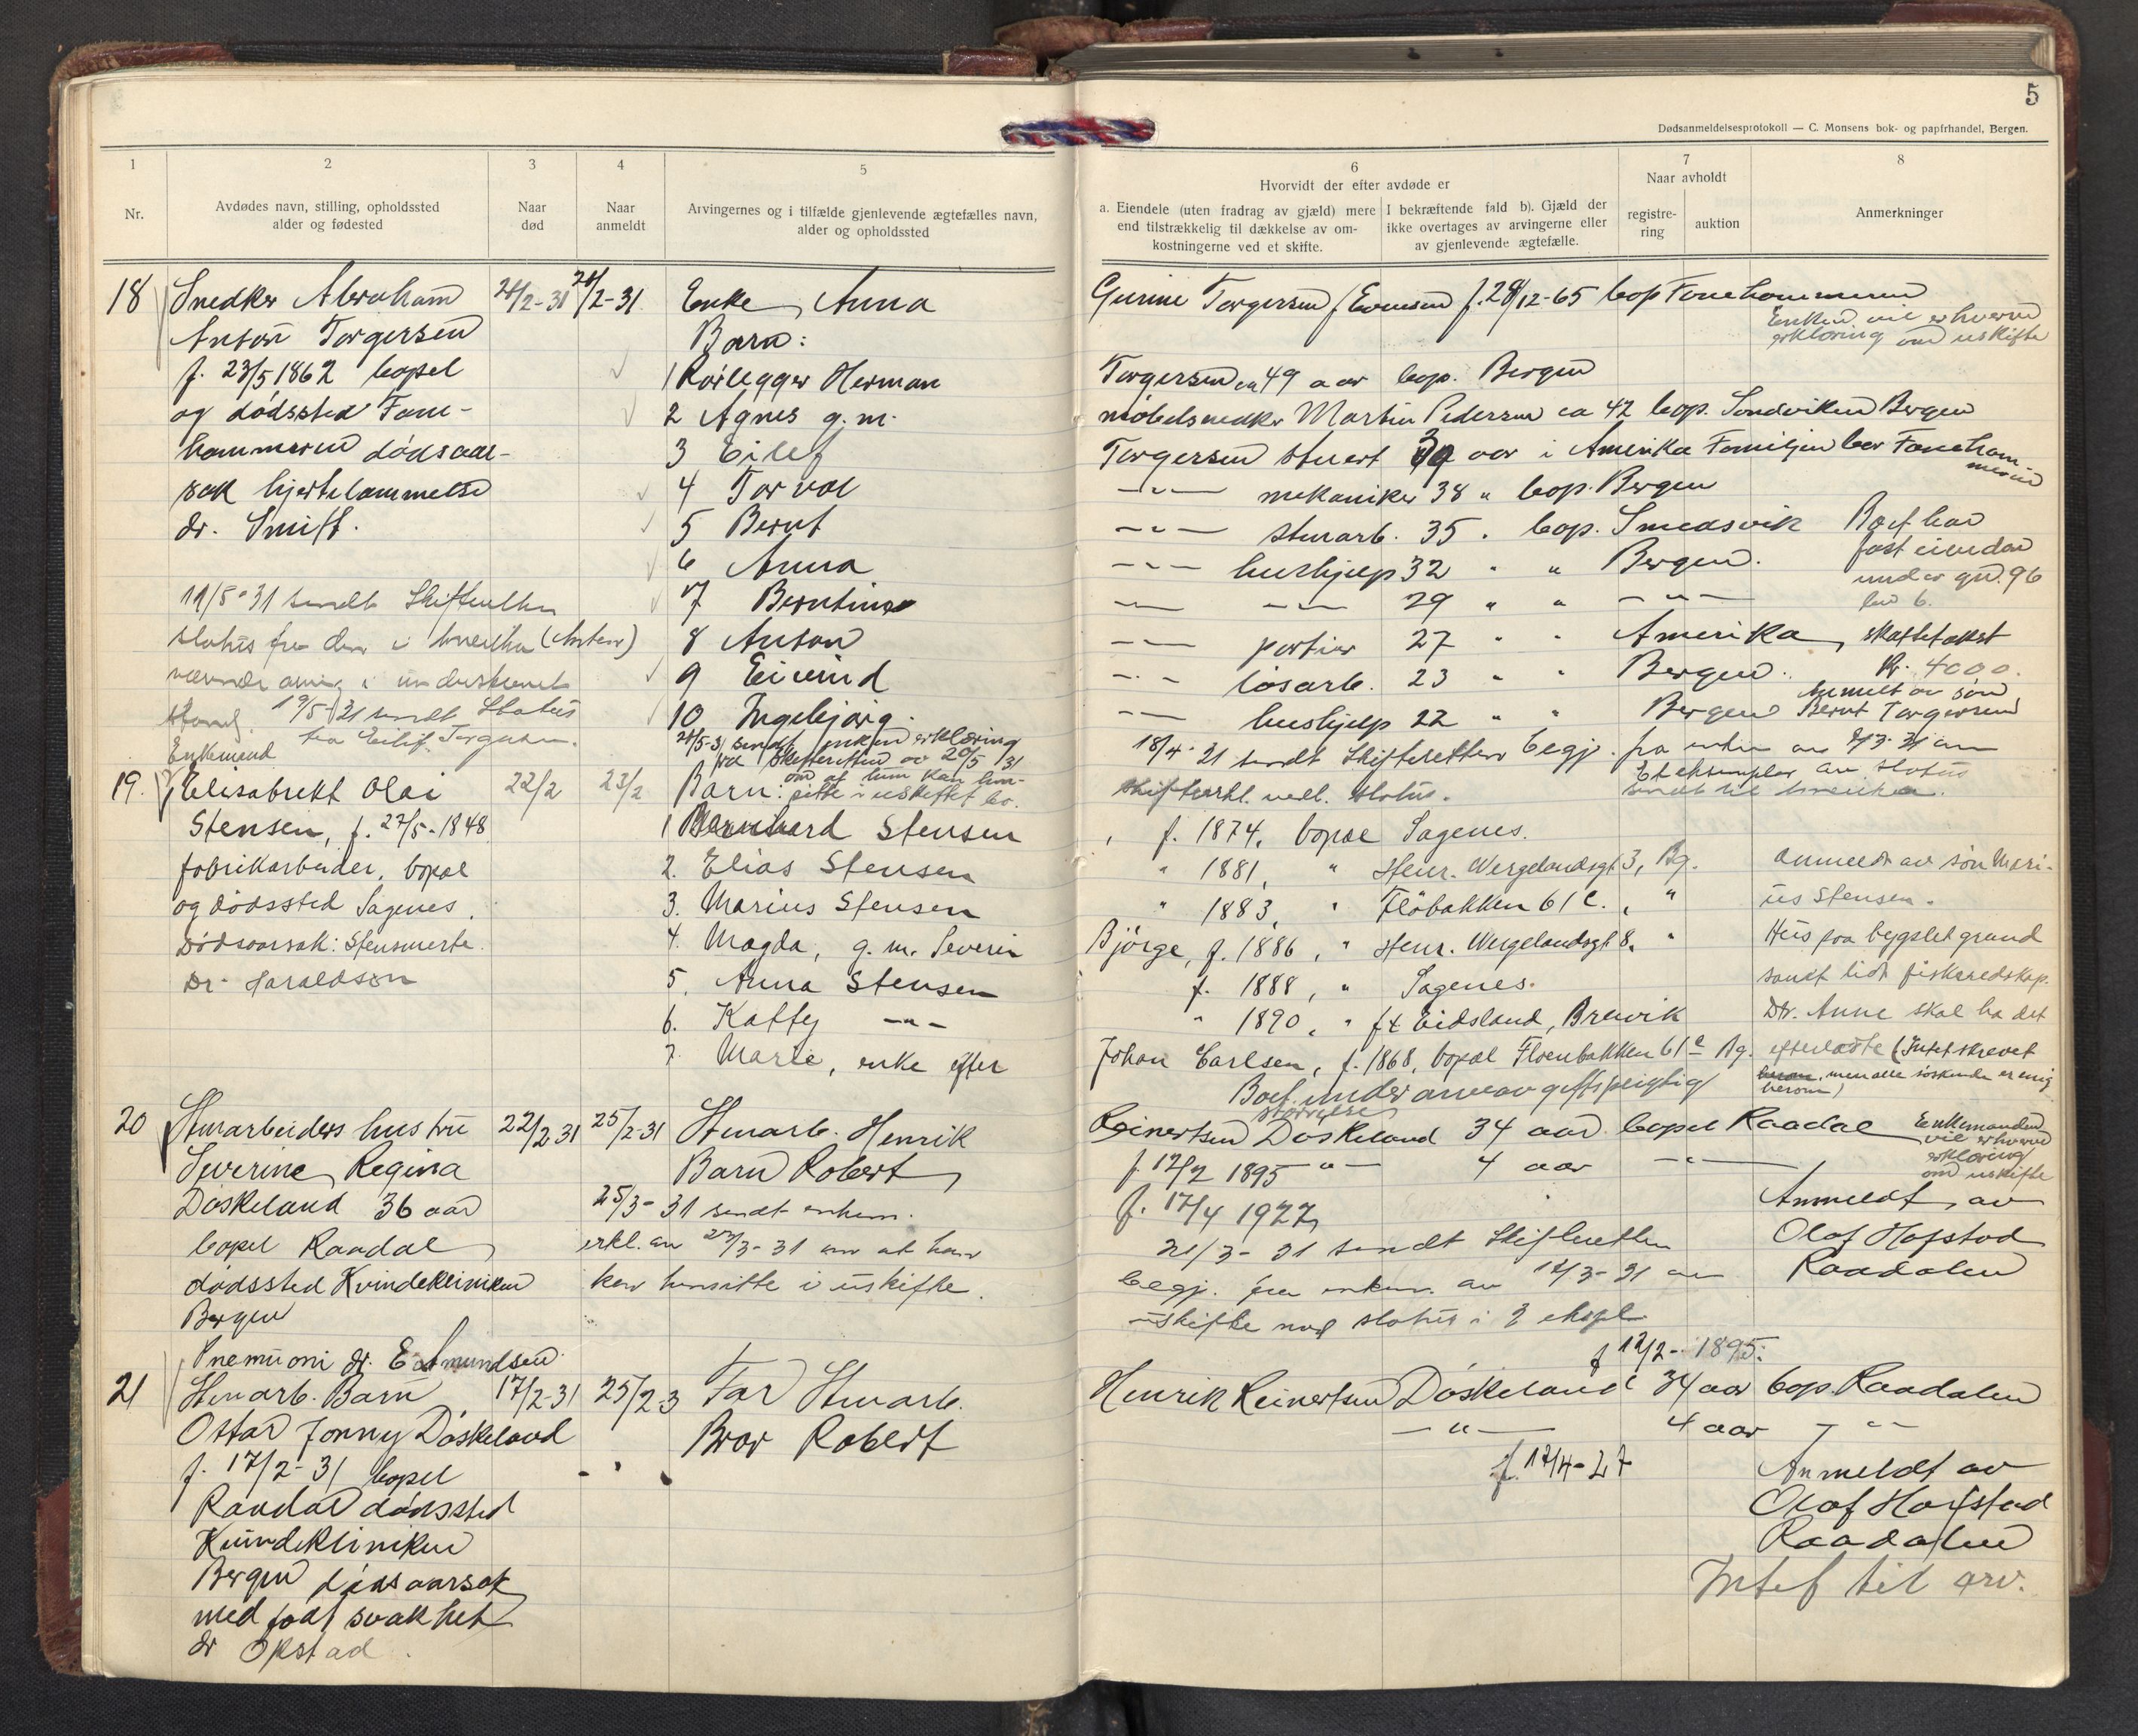 5
Dødsanmeldelsesprotokoll — C. Monsens bok- og papirhandel, Bergen.
1
2
3
4
5
Nr.
Avdødes navn, stilling, opholdssted
alder og fødested
Naar
død
Naar
anmeldt
Arvingernes og i tilfælde gjenlevende ægtefælles navn,
alder og opholdssted
6
Hvorvidt der efter avdøde er
a. Eiendele (uten fradrag av gjæld) mere
end tilstrækkelig til dækkelse av om-
kostningerne ved et skifte.
I bekræftende fald b). Gjæld der
ikke overtages av arvingerne eller
av gjenlevende ægtefælle.
7
Naar avholdt
registre-
ring
auktion
8
Anmerkninger
18
Snedker Abraham
Anton Torgersen
f. 23/5 1862 bopel
og dødssted Fane-
hammeren dødsaar-
sak hjertelammelse
dr. Smitt.
11/5-31 sendt Skifteretten
status fra den i Amerika (Anton)
værende arving i underskrevet
stand. 19/5-31 sendt Status
fra Eilif Torgersen.
24/2-31
24/2-31
Enke Anna
Barn:
1 Rørlegger Herman
2 Agnes g.m.
3 Eilef
4 Torval
5 Bernt
6 Anna
7 Berntine
8 Anton
9 Eivind
10 Ingebjørg.
24/5-31 sendt enken erklæring
fra Skifteretten av 20/5 31
om at hun kan hen-
sitte i uskiftet bo.
Gurine Torgersen f. Evensen f. 28/12-65 bop Fanehammeren
Enken vil erhverve
erklæring om uskifte
Torgersen ca 49 aar bop. Bergen
møbelsnedker Martin Pedersen ca 42 bop. Sandviken Bergen
Torgersen stuert 39 aar i Amerika Familjen bor Faneham-
meren
—„— mekaniker 38 „ bop. Bergen
—„— stenarb. 35 „ bop. Smedsvik
—„— hushjelp 32 „ „ Bergen.
—„— —„— 29 „ „ —„—
—„— portier 27 „ „ Amerika
—„— løsarb. 23 „ „ Bergen.
—„— hushjelp 22 „ „ Bergen
Boet har
fast eiendom
under gn. 96
bn 6.
skattetakst
kr. 4000.
Anmelt av søn
Bernt Torgersen
18/4-31 sendt Skifteretten begj. fra enken av 9/3-31 om
skifteerkl. vedl. status.
Et eksemplar av status
sendt til Amerika.
19.
Enkemand
Elisabrekt Olai
Stensen, f. 27/5-1848
fabrikarbeider, bopæl
og dødssted Sagenes.
Dødsaarsak: Stensmerte.
Dr. Haraldson
22/2
23/2
Barn:
1 Bernhard Stensen
2. Elias Stensen
3. Marius Stensen
4. Magda, g. m. Severin
5. Anna Stensen
6. Kathy —„—
7. Marie, enke efter
f. 1874, bopæl Sagenes.
„ 1881, „ Henr. Wergelandsgt. 3, Bg.
„ 1883, „ Fløbakken 61 c., „
Bjørge, f. 1886, „ Henr. Wergelandsgt 8, „
f. 1888, „ Sagenes.
„ 1890, „ ft Eidsland, Brevik
Johan Carlsen, f. 1868, bopæl Fløenbakken 61 c Bg.
Boet under arveavgiftspligtig
størrelse
Anmeldt av søn Mari-
us Stensen.
Hus paa bygslet grund
samt lidt fiskeredskap.
Dtr. Anne skal ha det
efterladte (Intet skrevet
herom, men alle søskende er enig
herom)
20
Stenarbeiders hustru
Severine Regina
Døskeland 36 aar
bopel Raadal
dødssted Kvindekliniken
Bergen
Pnemuoni dr. E. Amundsen
22/2 31
25/2-31
Stenarb. Henrik
Barn Robert
25/3-31 sendt enkem.
erkl. av 23/3-31 om at han
kan hensitte i uskifte.
Reinertsen Døskeland 34 aar bopel Raadal
f. 12/2 1895 —„— 4 aar —„—
f. 17/4 1927
21/3-31 sendt Skifteretten
begj. fra enkem. av 12/3-31 om
uskifte med status i 2 ekspl.
Enkemanden
vil erhverve
erklæring
om uskifte
Anmeldt av
Olaf Hafstad
Raadalen
21
Stenarb. Barn
Ottar Jonny Døskeland
f. 17/2-31 bopel
Raadal dødssted
Kvindekliniken
Bergen dødsaarsak
medfødt svakhet
dr Økstad.
17/2-31
25/2-3
Far Stenarb.
Bror Robert
f 12/2-1895.
Henrik Reinertsen Døskeland 34 aar bop. Raadalen
—„— 4 aar —„—
f. 17/4-27
Anmeldt av
Olaf Hafstad
Raadalen
Intet til arv.